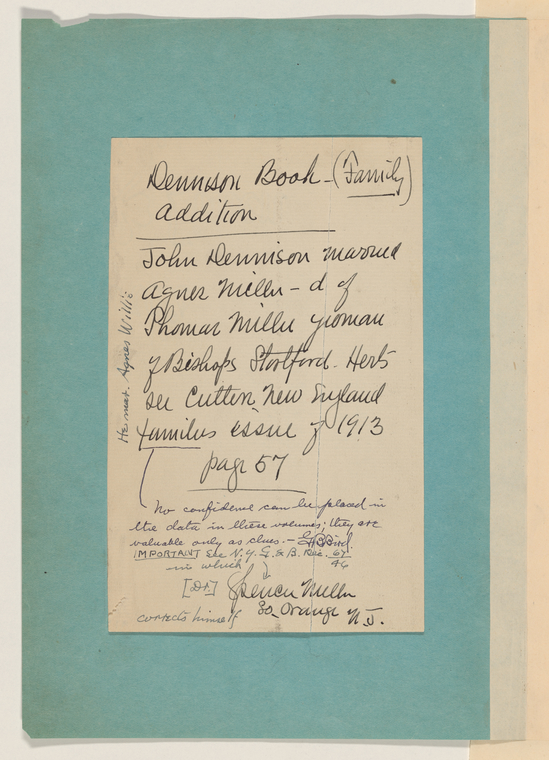 Dennison Book - (Family)
Addition
John Dennison married
Agnes Miller - d of
Thomas Miller yeoman
of Bishops Stortford - Herts
see Cutters New England
families issue of 1913
page 57
He mar. Agnes Willie
No confidence can be placed in
the data in these volumes; they are
valuable only as clues. -
IMPORTANT See N.Y. G. & B. Rec. 67/46
in which
[Dr.] Spencer Miller
So. Orange N.J.
corrects himself